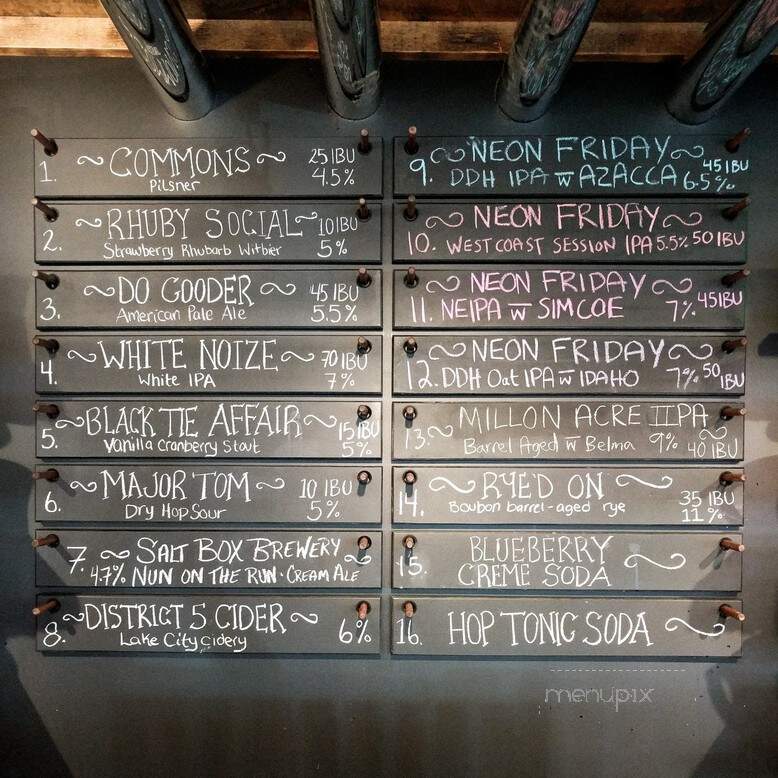 1. ~ COMMONS ~ 25 IBU
Pilsner 4.5%
2. ~ RHUBY SOCIAL ~ 10 IBU
Strawberry Rhubarb Witbier 5%
3. ~ DO GOODER ~ 45 IBU
American Pale Ale 5.5%
4. ~ WHITE NOIZE ~ 70 IBU
White IPA 7%
5. ~ BLACK TIE AFFAIR ~ 15 IBU
Vanilla Cranberry Stout 5%
6. ~ MAJOR TOM ~ 10 IBU
Dry Hop Sour 5%
7. ~ SALT BOX BREWERY ~
4.7% NUN ON THE RUN · CREAM ALE
8. ~ DISTRICT 5 CIDER ~
Lake City cidery 6%
9. ~ NEON FRIDAY ~ 45 IBU
DDH IPA w AZACCA 6.5%
~ NEON FRIDAY ~
10. WEST COAST SESSION IPA 5.5% 50 IBU
~ NEON FRIDAY ~
11. NEIPA w SIMCOE 7% 45 IBU
~ NEON FRIDAY ~
12. DDH Oat IPA w IDAHO 7% 50 IBU
13. ~ MILLON ACRE IIPA ~
Barrel Aged w Belma 9% 40 IBU
14. ~ RYE'D ON ~ 35 IBU
Boubon barrel-aged rye 11%
BLUEBERRY ~
15. CREME SODA
16. HOP TONIC SODA ~
menupix